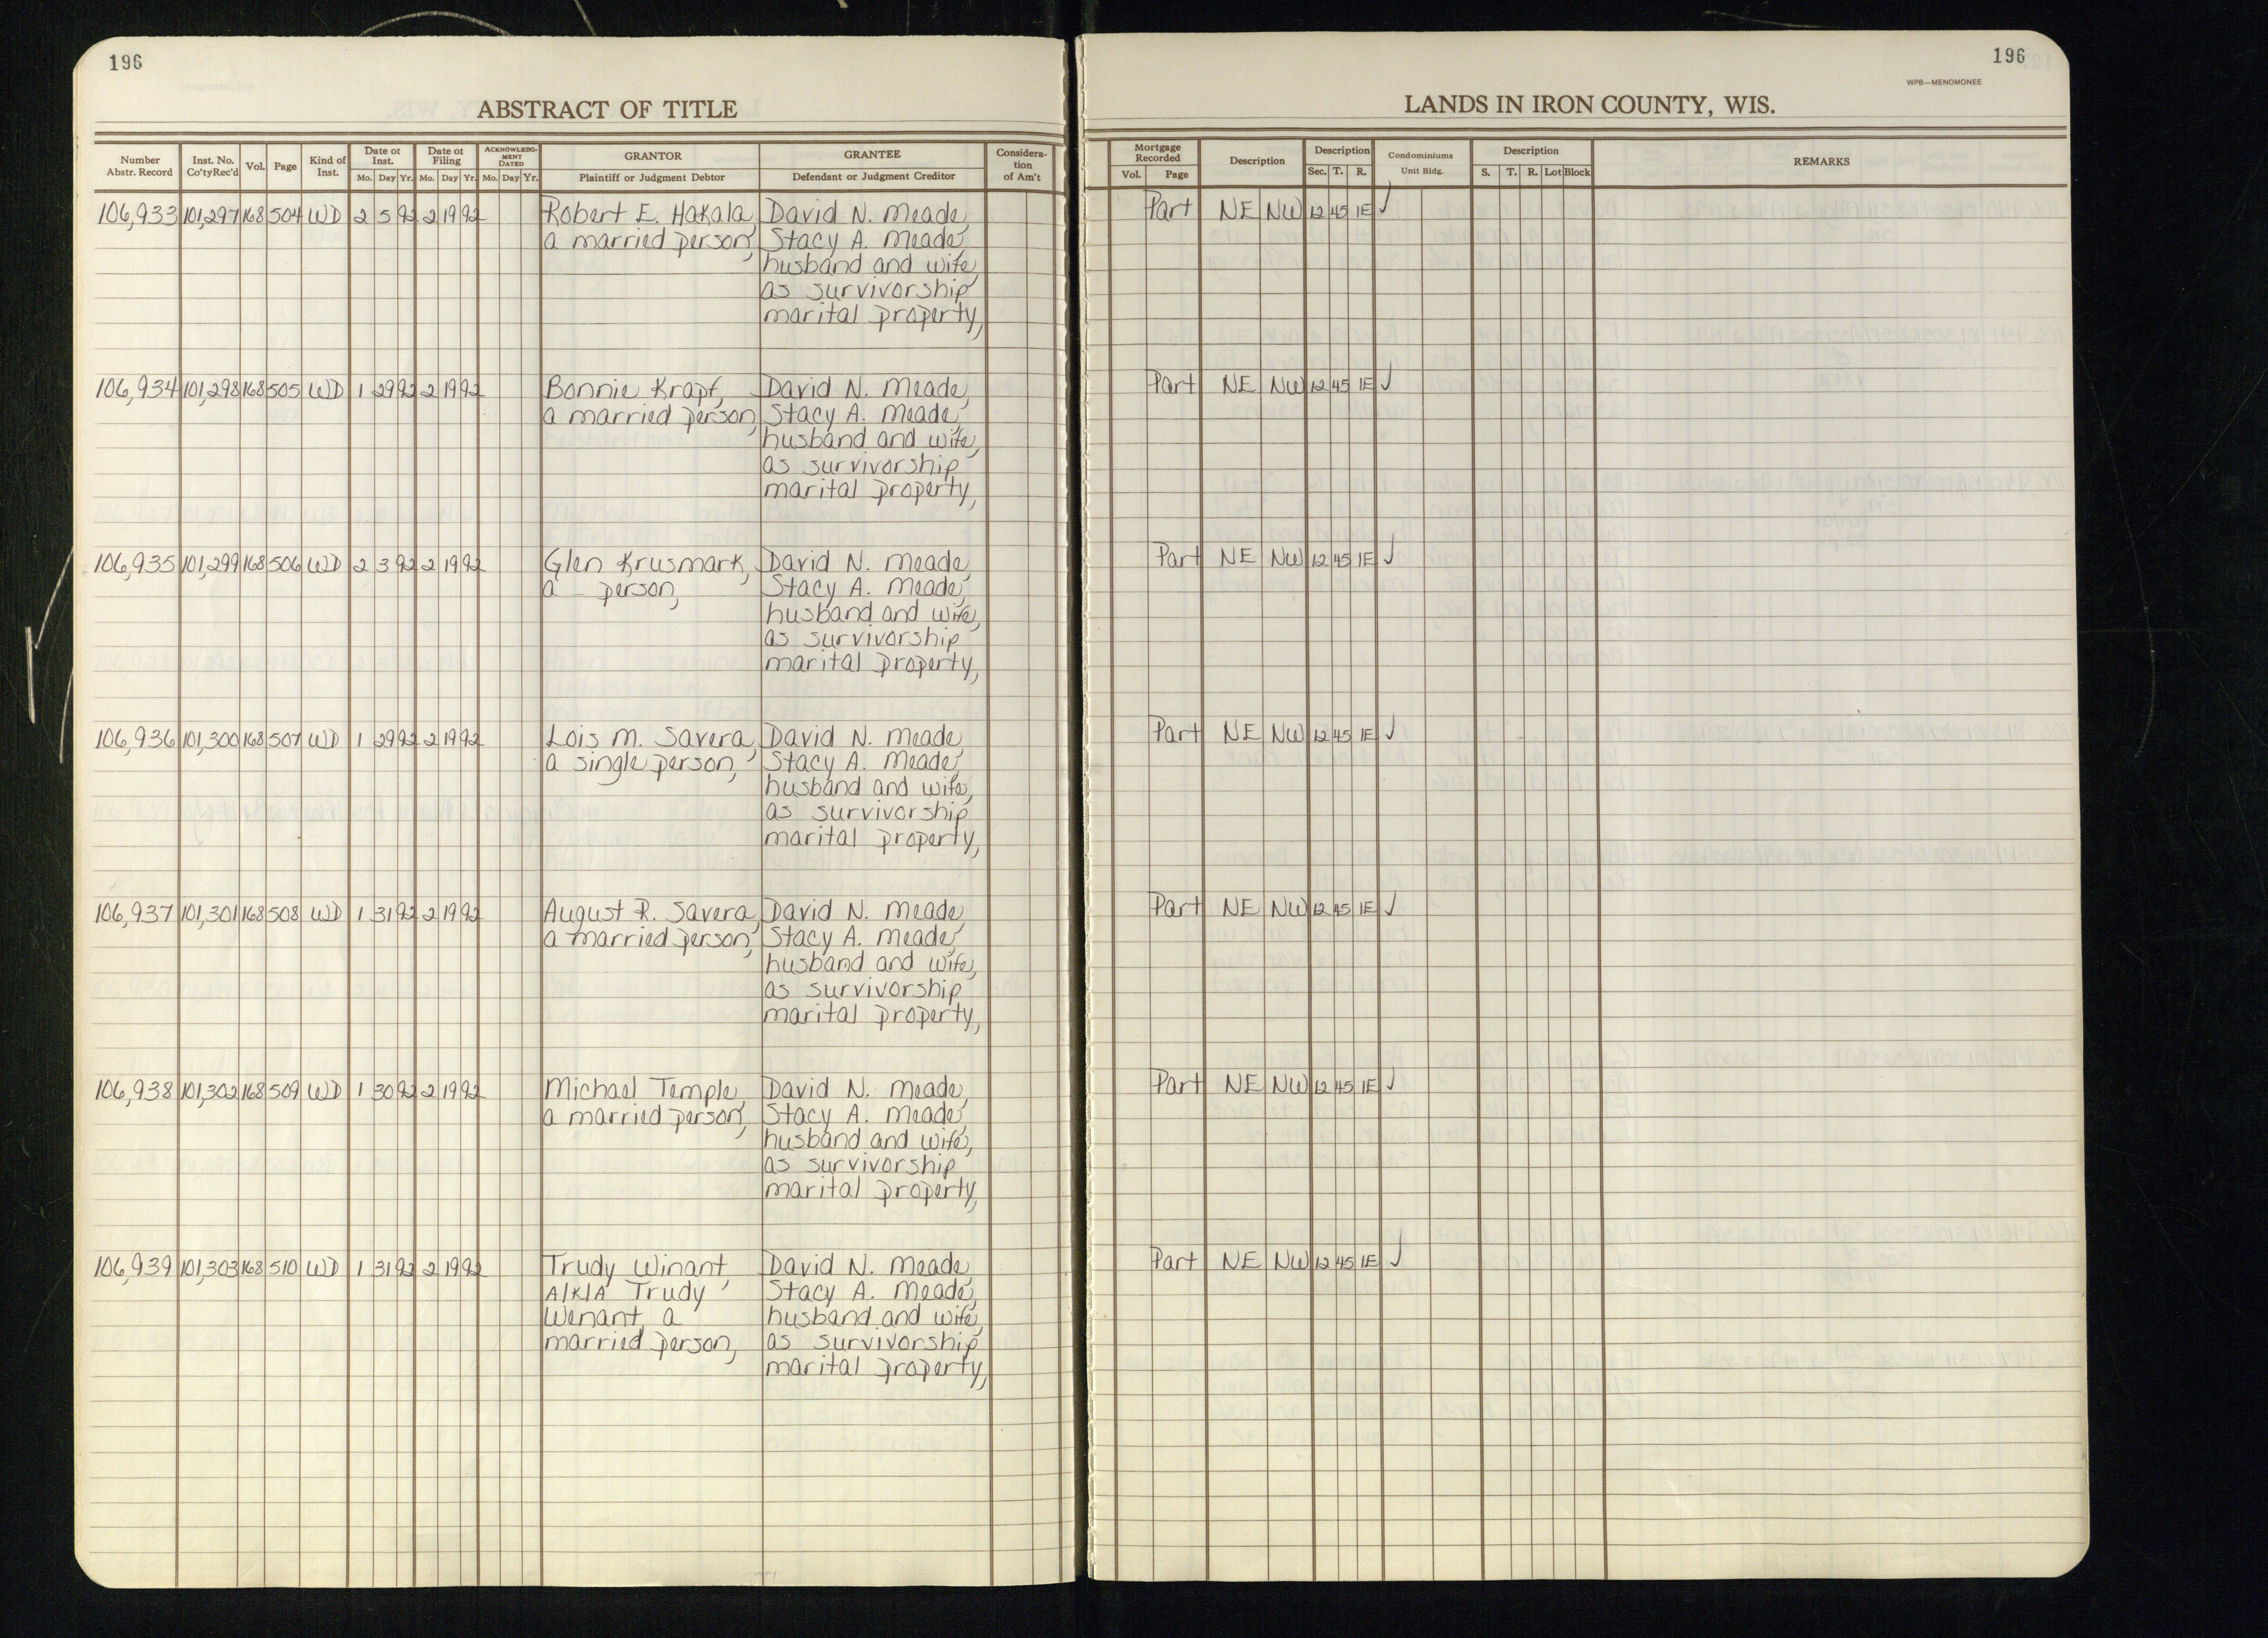 196
ABSTRACT OF TITLE
Number Abstr. Record | Inst. No. Co'tyRec'd | Vol. | Page | Kind of Inst. | Date of Inst. Mo. Day Yr. | Date of Filing Mo. Day Yr. | ACKNOWLEDGMENT DATED Mo. Day Yr. | GRANTOR Plaintiff or Judgment Debtor | GRANTEE Defendant or Judgment Creditor | Consideration of Am't
106,933 101,297 168 504 WD 2 5 92 2 19 92 Robert E. Hakala, David N. Meade,
a married person, Stacy A. Meade,
husband and wife,
as survivorship
marital property,
106,934 101,298 168 505 WD 1 29 92 2 19 92 Bonnie Krapf, David N. Meade,
a married person, Stacy A. Meade,
husband and wife,
as survivorship
marital property,
106,935 101,299 168 506 WD 2 3 92 2 19 92 Glen Krusmark, David N. Meade,
a – person, Stacy A. Meade,
husband and wife,
as survivorship
marital property,
106,936 101,300 168 507 WD 1 29 92 2 19 92 Lois M. Savera, David N. Meade,
a single person, Stacy A. Meade,
husband and wife,
as survivorship
marital property,
106,937 101,301 168 508 WD 1 31 92 2 19 92 August R. Savera, David N. Meade,
a married person, Stacy A. Meade,
husband and wife,
as survivorship
marital property,
106,938 101,302 168 509 WD 1 30 92 2 19 92 Michael Temple, David N. Meade,
a married person, Stacy A. Meade,
husband and wife,
as survivorship
marital property,
106,939 101,303 168 510 WD 1 31 92 2 19 92 Trudy Winant, David N. Meade,
A/K/A Trudy Stacy A. Meade,
Wenant, a husband and wife,
married person, as survivorship
marital property,
196
WPB—MENOMONEE
LANDS IN IRON COUNTY, WIS.
Mortgage Recorded Vol. Page | Description | Description Sec. T. R. | Condominiums Unit Bldg. | Description S. T. R. Lot Block | REMARKS
Part NE NW 12 45 1E ✓
Part NE NW 12 45 1E ✓
Part NE NW 12 45 1E ✓
Part NE NW 12 45 1E ✓
Part NE NW 12 45 1E ✓
Part NE NW 12 45 1E ✓
Part NE NW 12 45 1E ✓